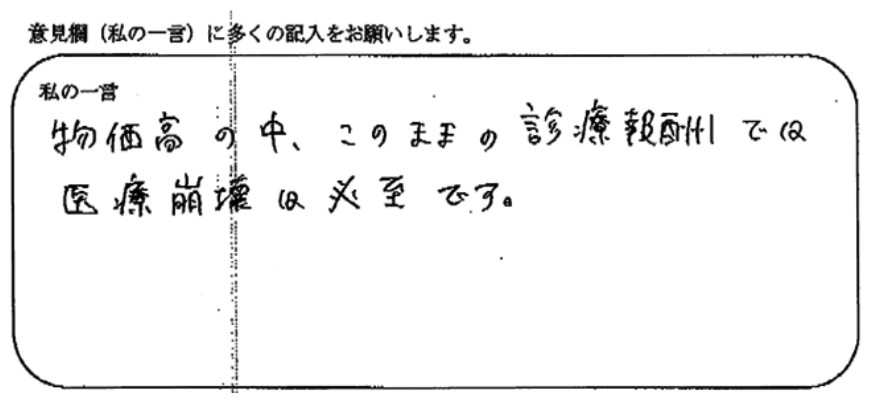 意見欄（私の一言）に多くの記入をお願いします。
私の一言
物価高の中、このままの診療報酬では
医療崩壊は必至です。